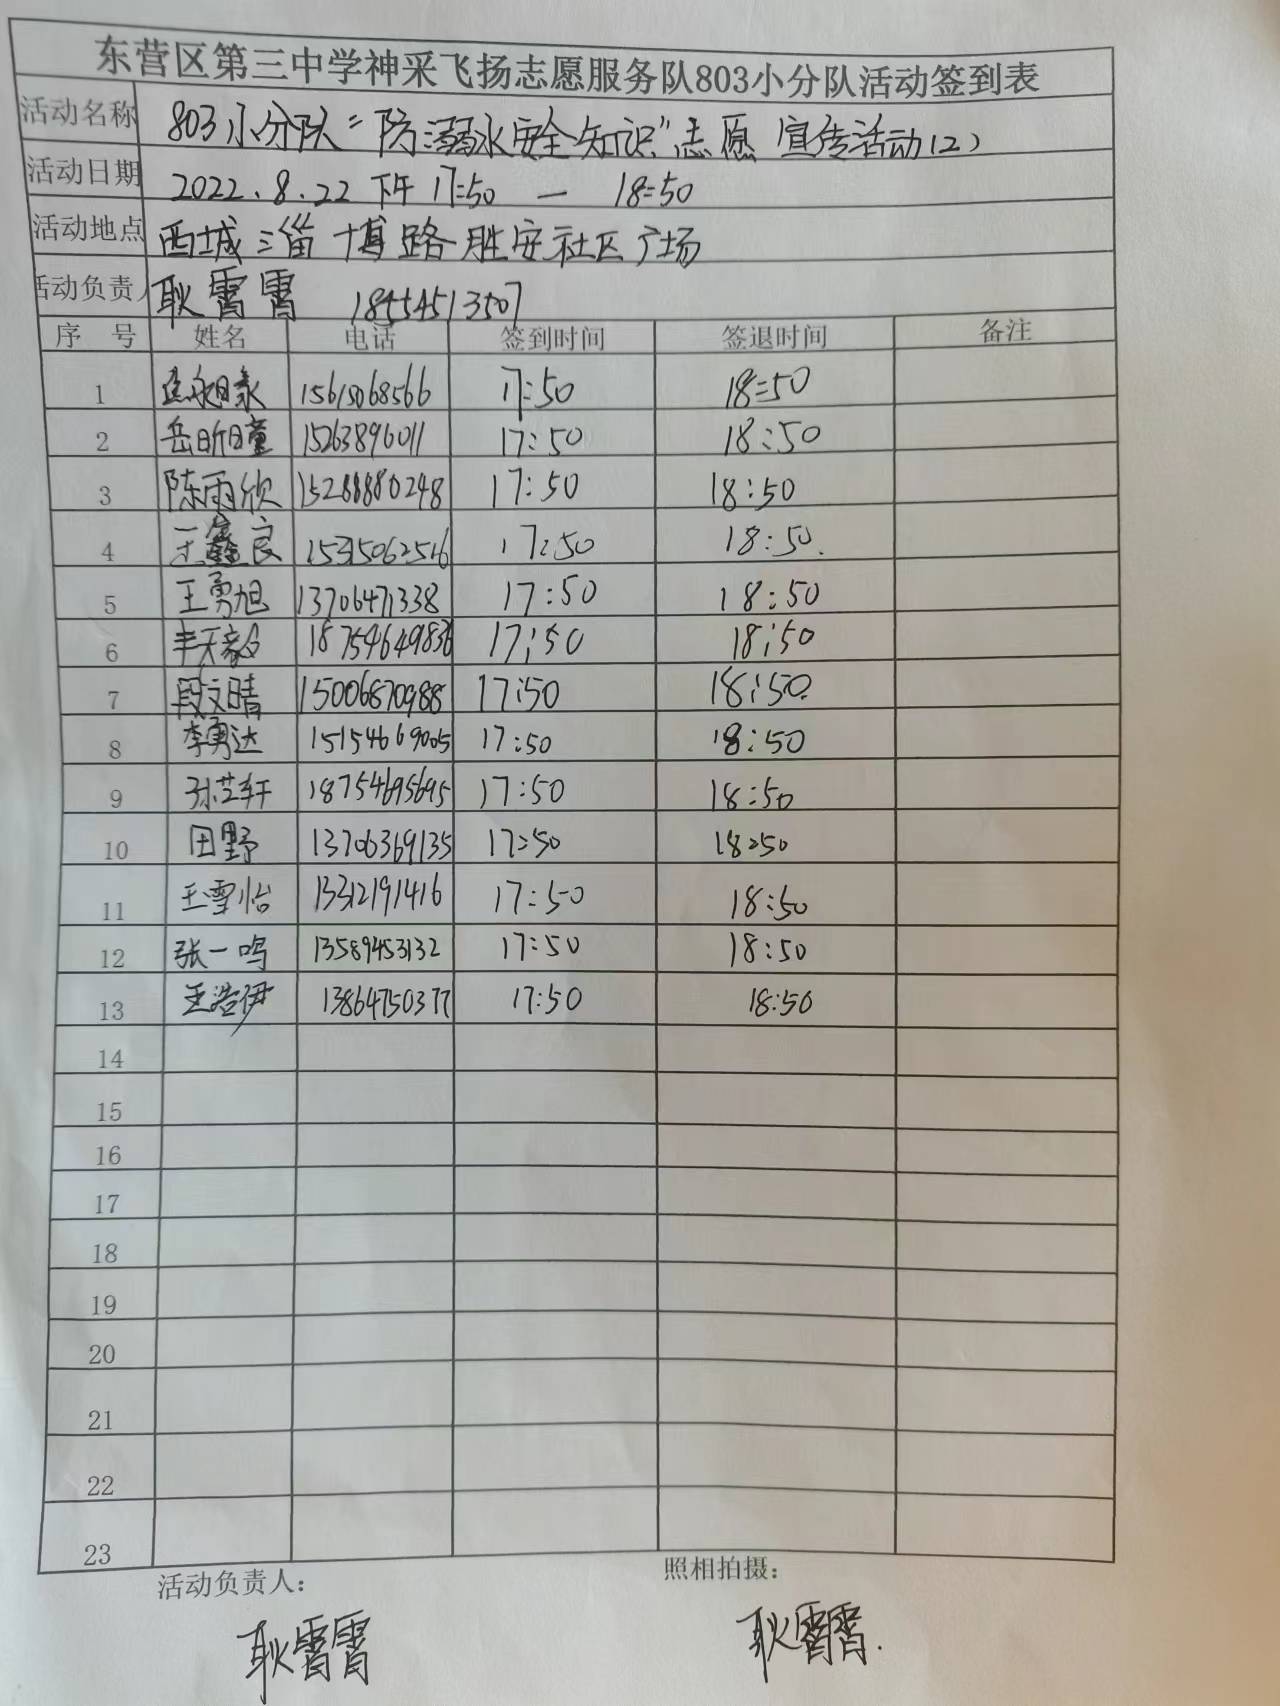 东营区第三中学神采飞扬志愿服务队803小分队活动签到表
活动名称 803小分队“防溺水安全知识”志愿宣传活动(2)
活动日期 2022.8.22 下午 17:50 — 18:50
活动地点 西城淄博路胜安社区广场
活动负责人 耿霄霄 18554513507
序号 姓名 电话 签到时间 签退时间 备注
1 15615068566 17:50 18:50
2 岳昕曈 15263896011 17:50 18:50
3 陈雨欣 15288880248 17:50 18:50
4 王鑫良 15315062516 17:50 18:50
5 王勇旭 13706471338 17:50 18:50
6 丰天毅 18754649836 17:50 18:50
7 段文晴 15006870988 17:50 18:50
8 李勇达 15154669005 17:50 18:50
9 孙芷轩 18754695695 17:50 18:50
10 田野 13706369135 17:50 18:50
11 王雪怡 13312191416 17:50 18:50
12 张一鸣 13589453132 17:50 18:50
13 王浩伊 13864750377 17:50 18:50
14
15
16
17
18
19
20
21
22
23
活动负责人： 照相拍摄：
耿霄霄 耿霄霄.